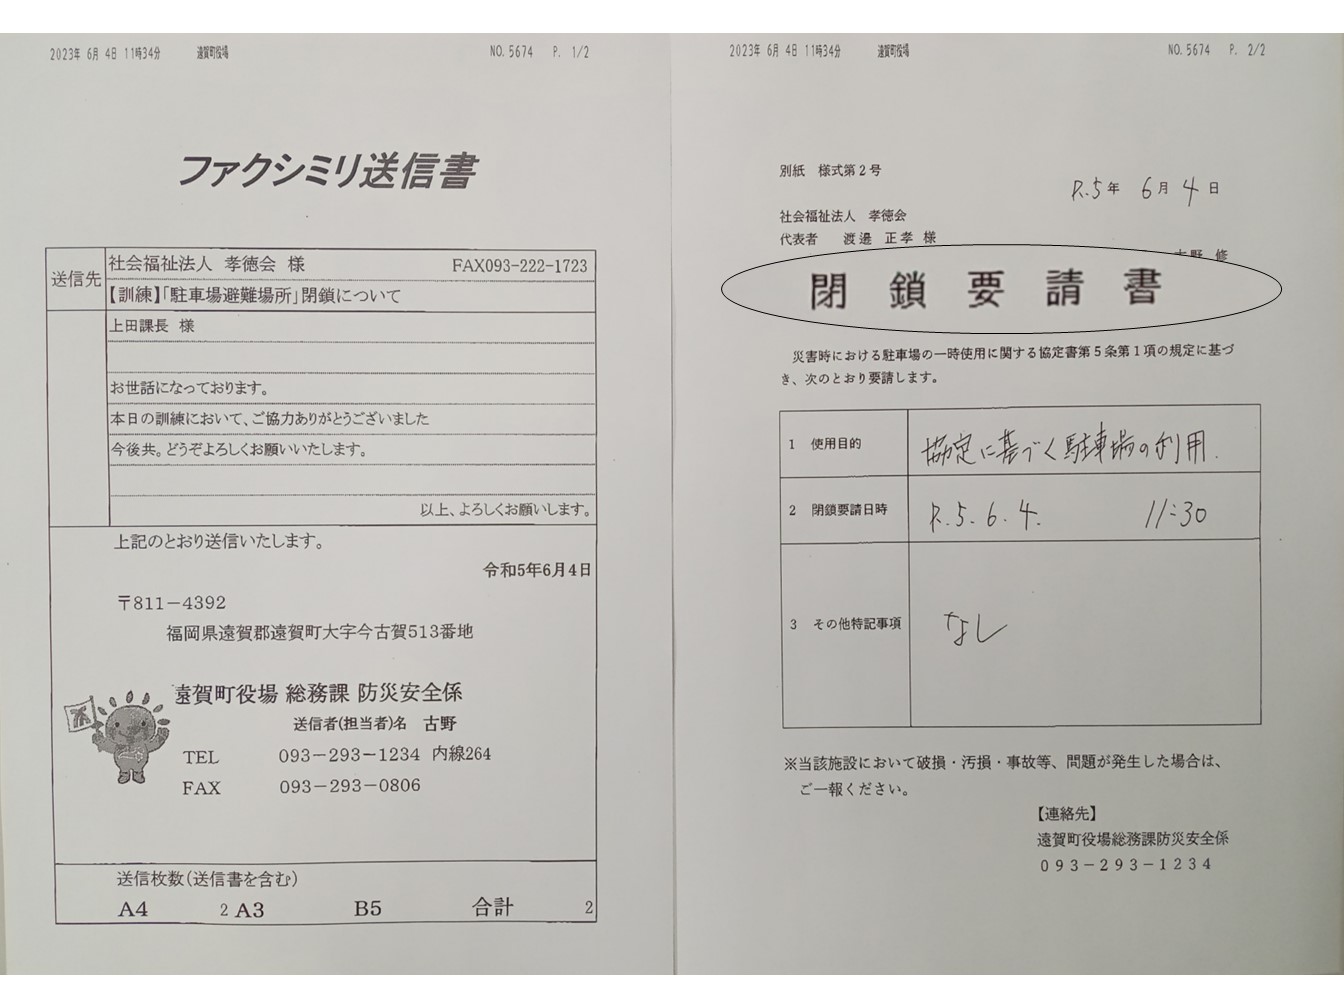 2023年 6月 4日 11時34分 遠賀町役場 NO. 5674 P. 1/2
ファクシミリ送信書
送信先
社会福祉法人 孝徳会 様 FAX093-222-1723
【訓練】「駐車場避難場所」閉鎖について
上田課長 様
お世話になっております。
本日の訓練において、ご協力ありがとうございました
今後共。どうぞよろしくお願いいたします。
以上、よろしくお願いします。
上記のとおり送信いたします。
令和5年6月4日
〒811-4392
福岡県遠賀郡遠賀町大字今古賀513番地
遠賀町役場 総務課 防災安全係
送信者(担当者)名 古野
TEL 093-293-1234 内線264
FAX 093-293-0806
送信枚数(送信書を含む)
A4 2 A3 B5 合計 2
2023年 6月 4日 11時34分 遠賀町役場 NO. 5674 P. 2/2
別紙 様式第2号
R.5年 6月 4日
社会福祉法人 孝徳会
代表者 渡邊 正孝 様
古野 修
閉鎖要請書
災害時における駐車場の一時使用に関する協定書第5条第1項の規定に基づ
き、次のとおり要請します。
1 使用目的 協定に基づく駐車場の利用.
2 閉鎖要請日時 R.5.6.4. 11:30
3 その他特記事項 なし
※当該施設において破損・汚損・事故等、問題が発生した場合は、
ご一報ください。
【連絡先】
遠賀町役場総務課防災安全係
093-293-1234